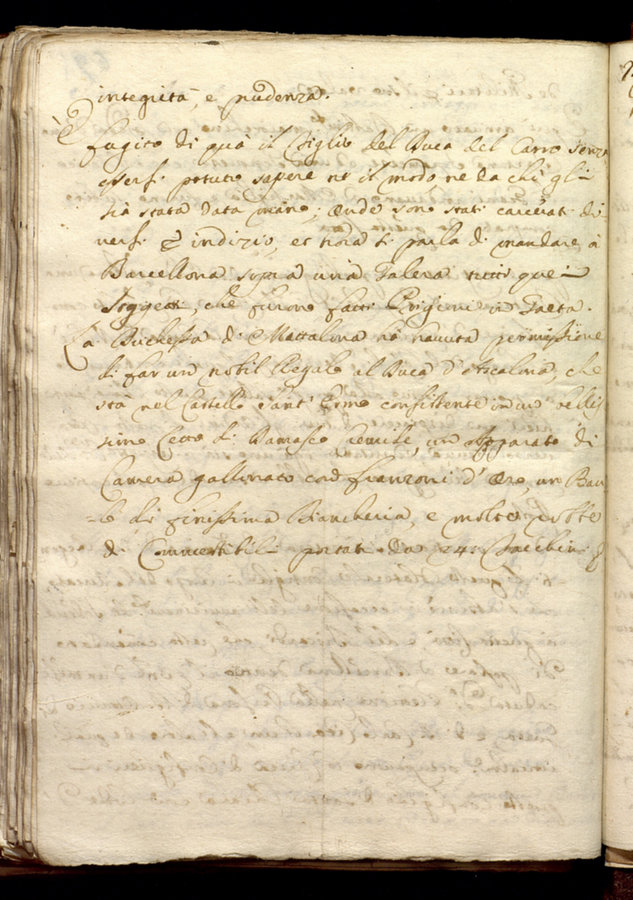 integrità, e prudenza.
È fugito di quà il Figlio del Duca del Carro senza
essersi potuto sapere ne il modo, ne da chi gli
sia stata data mano; onde sono stati carcerati di
versi per indizio, et hora si parla di mandare à
Barcellona sopra una Galera tutti quei
Soggetti, che furono fatti Prigioni in Gaeta.
La Duchessa di Mattalona hà havuta permissione
di far un nobil Regalo al Duca d'Ascalona, che
stà nel Castello Sant'Ermo consistente in un bellis
simo Letto di Damasco cremisi, un Apparato di
Camera gallonato con franzoni d'Oro, un Bau
=le di finissima Biancheria, e molte robbe
di Commestibili portati da 24: Facchini